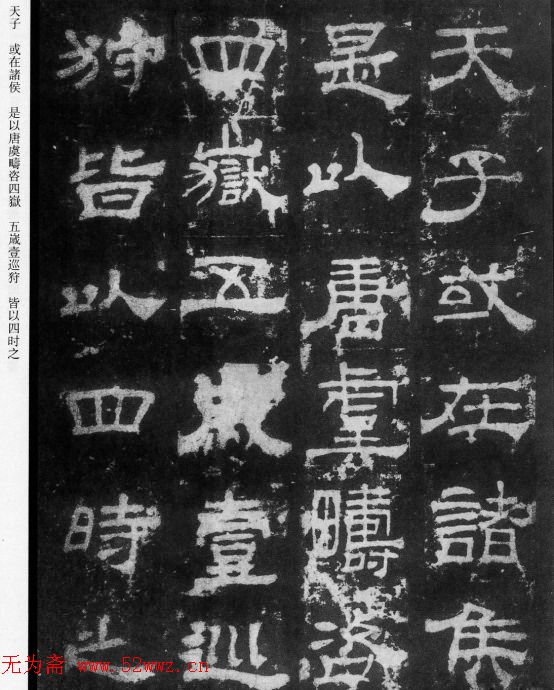 天子或在諸侯
是以唐虞疇咨
四嶽五歲壹巡
狩皆以四時之
天子　或在諸侯　是以唐虞疇咨四嶽　五歲壹巡狩　皆以四时之
无为斋 www.52wwz.cn